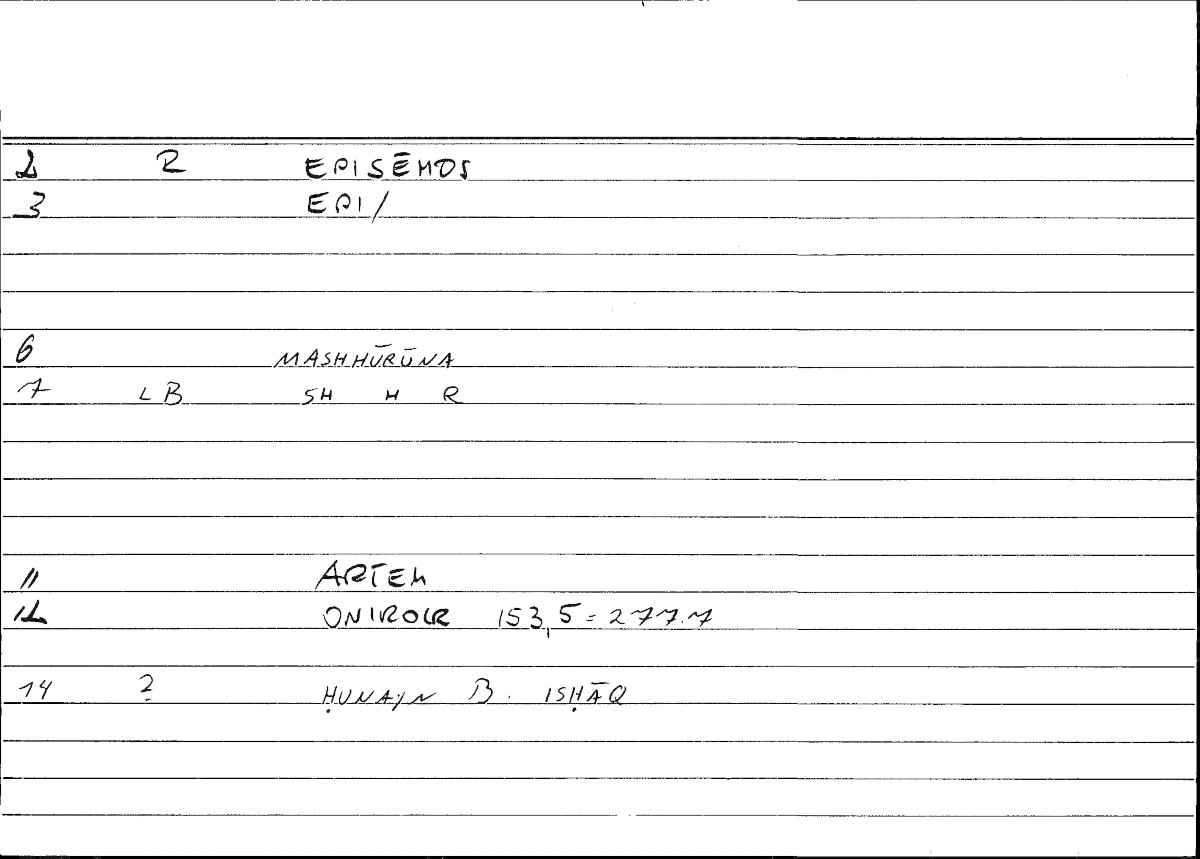 2 R EPISĒMOS
3 EPI/
6 MASHHŪRŪNA
7 LB SH H R
11 ARTEM
12 ONIROCR 153,5 = 277.7
14 ? ḤUNAYN B. ISḤĀQ